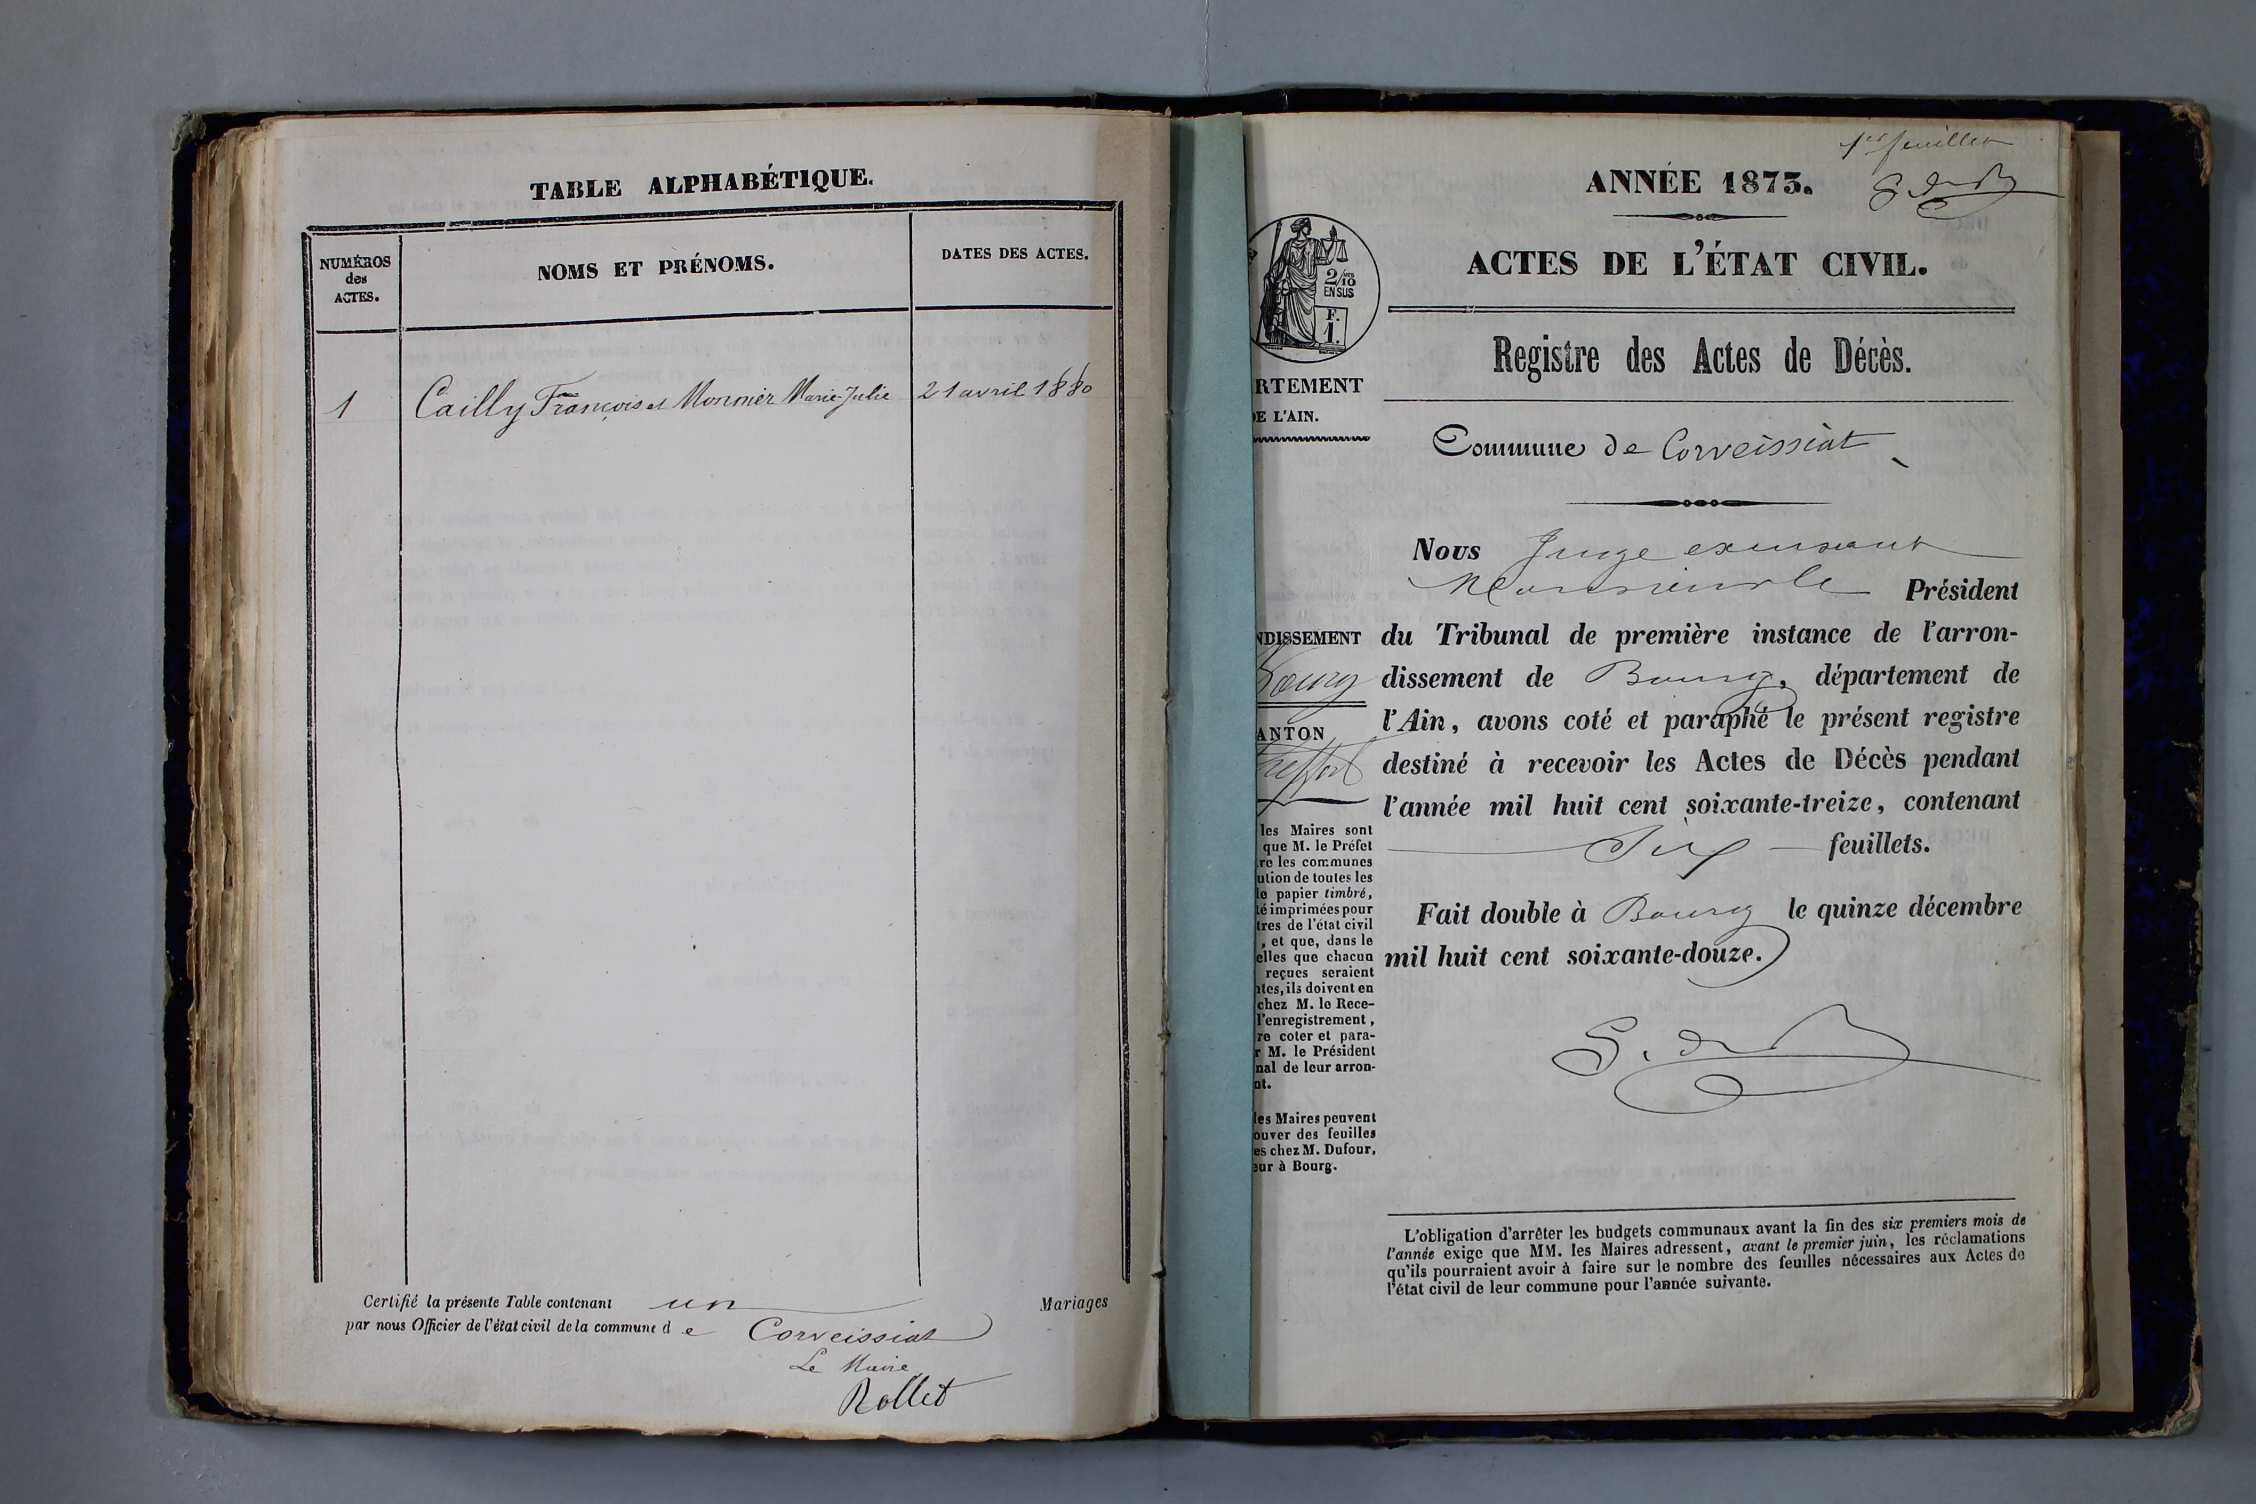 TABLE ALPHABÉTIQUE.
NUMÉROS
des
ACTES.
NOMS ET PRÉNOMS.
DATES DES ACTES.
1 Cailly François et Monnier Marie-Julie 21 avril 1880
Certifié la présente Table contenant un Mariages
par nous Officier de l'état civil de la commune de Corveissiat
Le Maire
Rollet
1er feuillet
ANNÉE 1873.
ACTES DE L'ÉTAT CIVIL.
2/10
EN SUS
F.
1.
Registre des Actes de Décès.
RTEMENT
DE L'AIN.
Commune de Corveissiat
Nous Juge exerçant
Monsieur le Président
NDISSEMENT
du Tribunal de première instance de l'arron-
Bourg
dissement de Bourg, département de
l'Ain, avons coté et paraphé le présent registre
ANTON
Treffort
destiné à recevoir les Actes de Décès pendant
l'année mil huit cent soixante-treize, contenant
Six feuillets.
Fait double à Bourg le quinze décembre
mil huit cent soixante-douze.
les Maires sont
que M. le Préfet
re les communes
ution de toutes les
le papier timbré,
té imprimées pour
tres de l'état civil
, et que, dans le
elles que chacun
reçues seraient
ntes, ils doivent en
chez M. le Rece-
l'enregistrement,
re coter et para-
r M. le Président
nal de leur arron-
nt.
les Maires peuvent
ouver des feuilles
es chez M. Dufour,
eur à Bourg.
L'obligation d'arrêter les budgets communaux avant la fin des six premiers mois de
l'année exige que MM. les Maires adressent, avant le premier juin, les réclamations
qu'ils pourraient avoir à faire sur le nombre des feuilles nécessaires aux Actes de
l'état civil de leur commune pour l'année suivante.